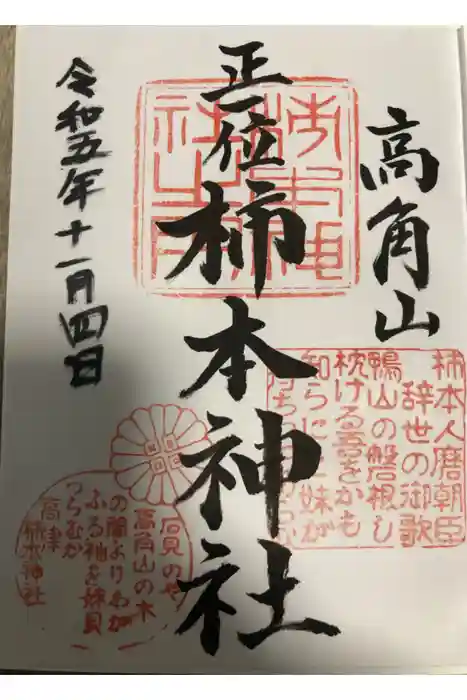 高角山
柿本人麿朝臣
辞世の御歌
鴨山の磐根し
枕ける吾をかも
知らに 妹が
正一位
柿本神社
令和五年十一月四日
石見のや
高角山の木
の間よりわが
ふる袖を妹見
つらむか
高津
柿本神社